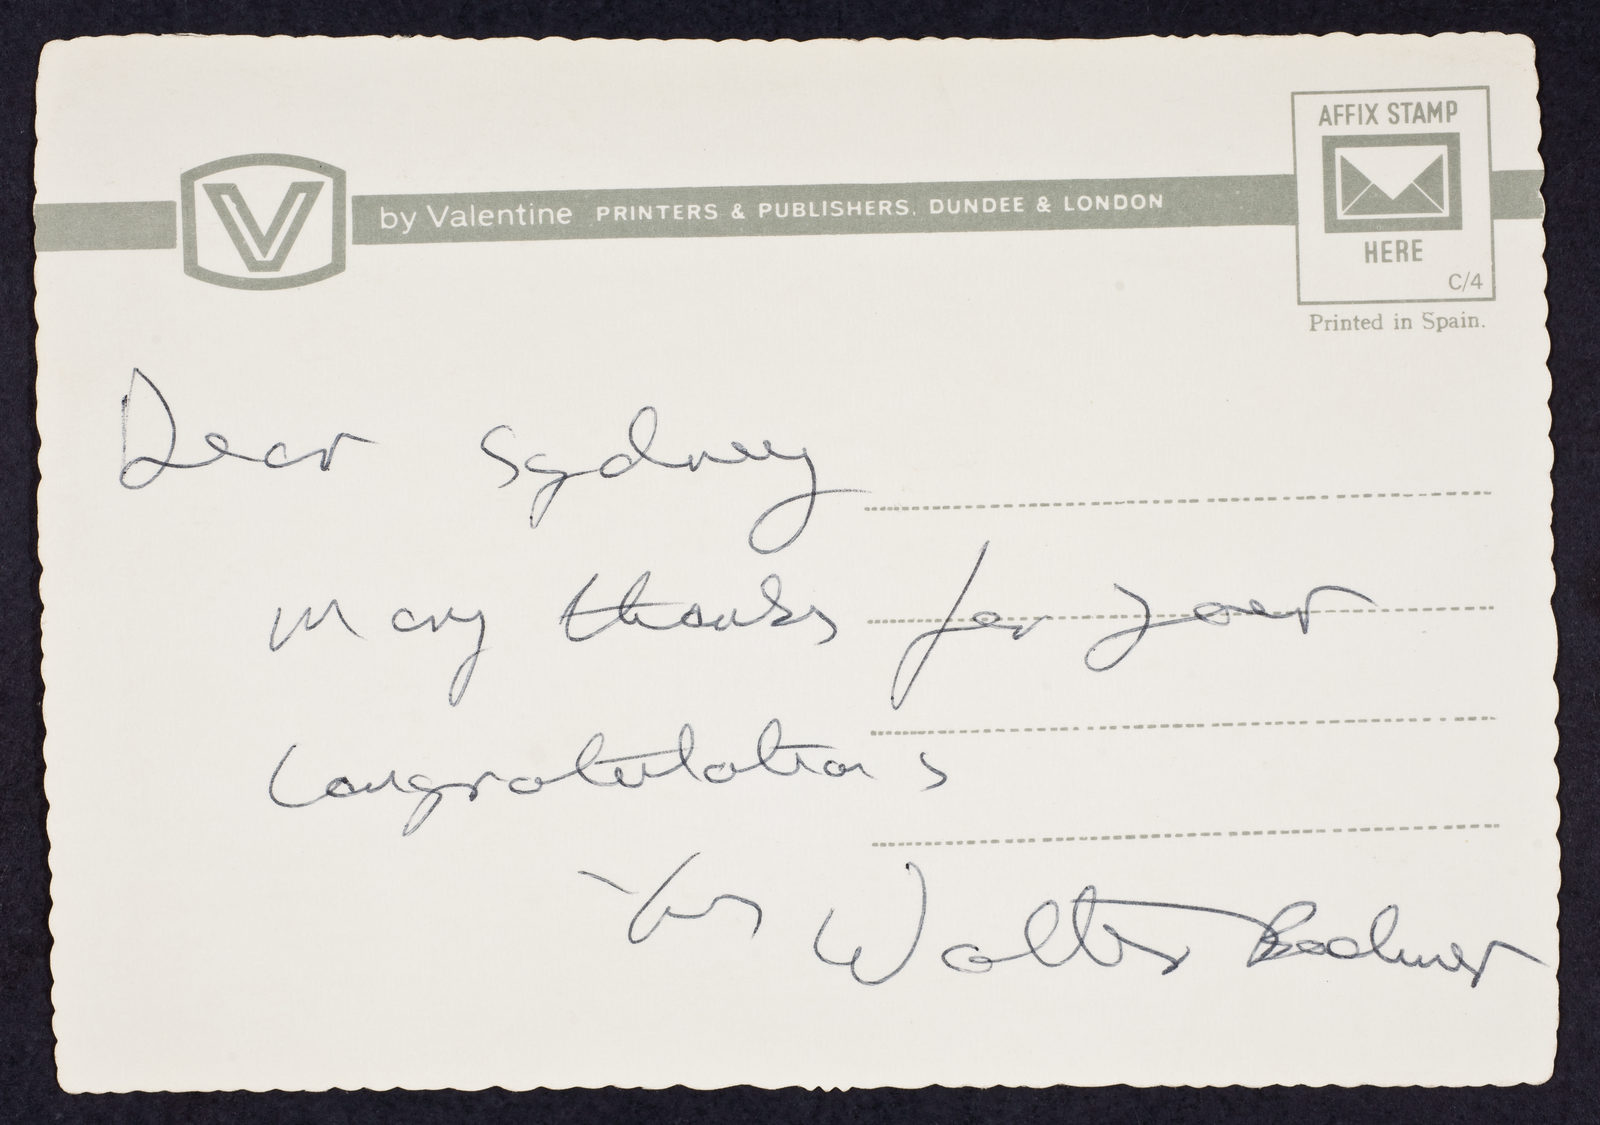 AFFIX STAMP
HERE
C/4
Printed in Spain.
V by Valentine PRINTERS & PUBLISHERS. DUNDEE & LONDON
Dear Sydney
Many thanks for your
Congratulations
Yrs Walter Bodmer